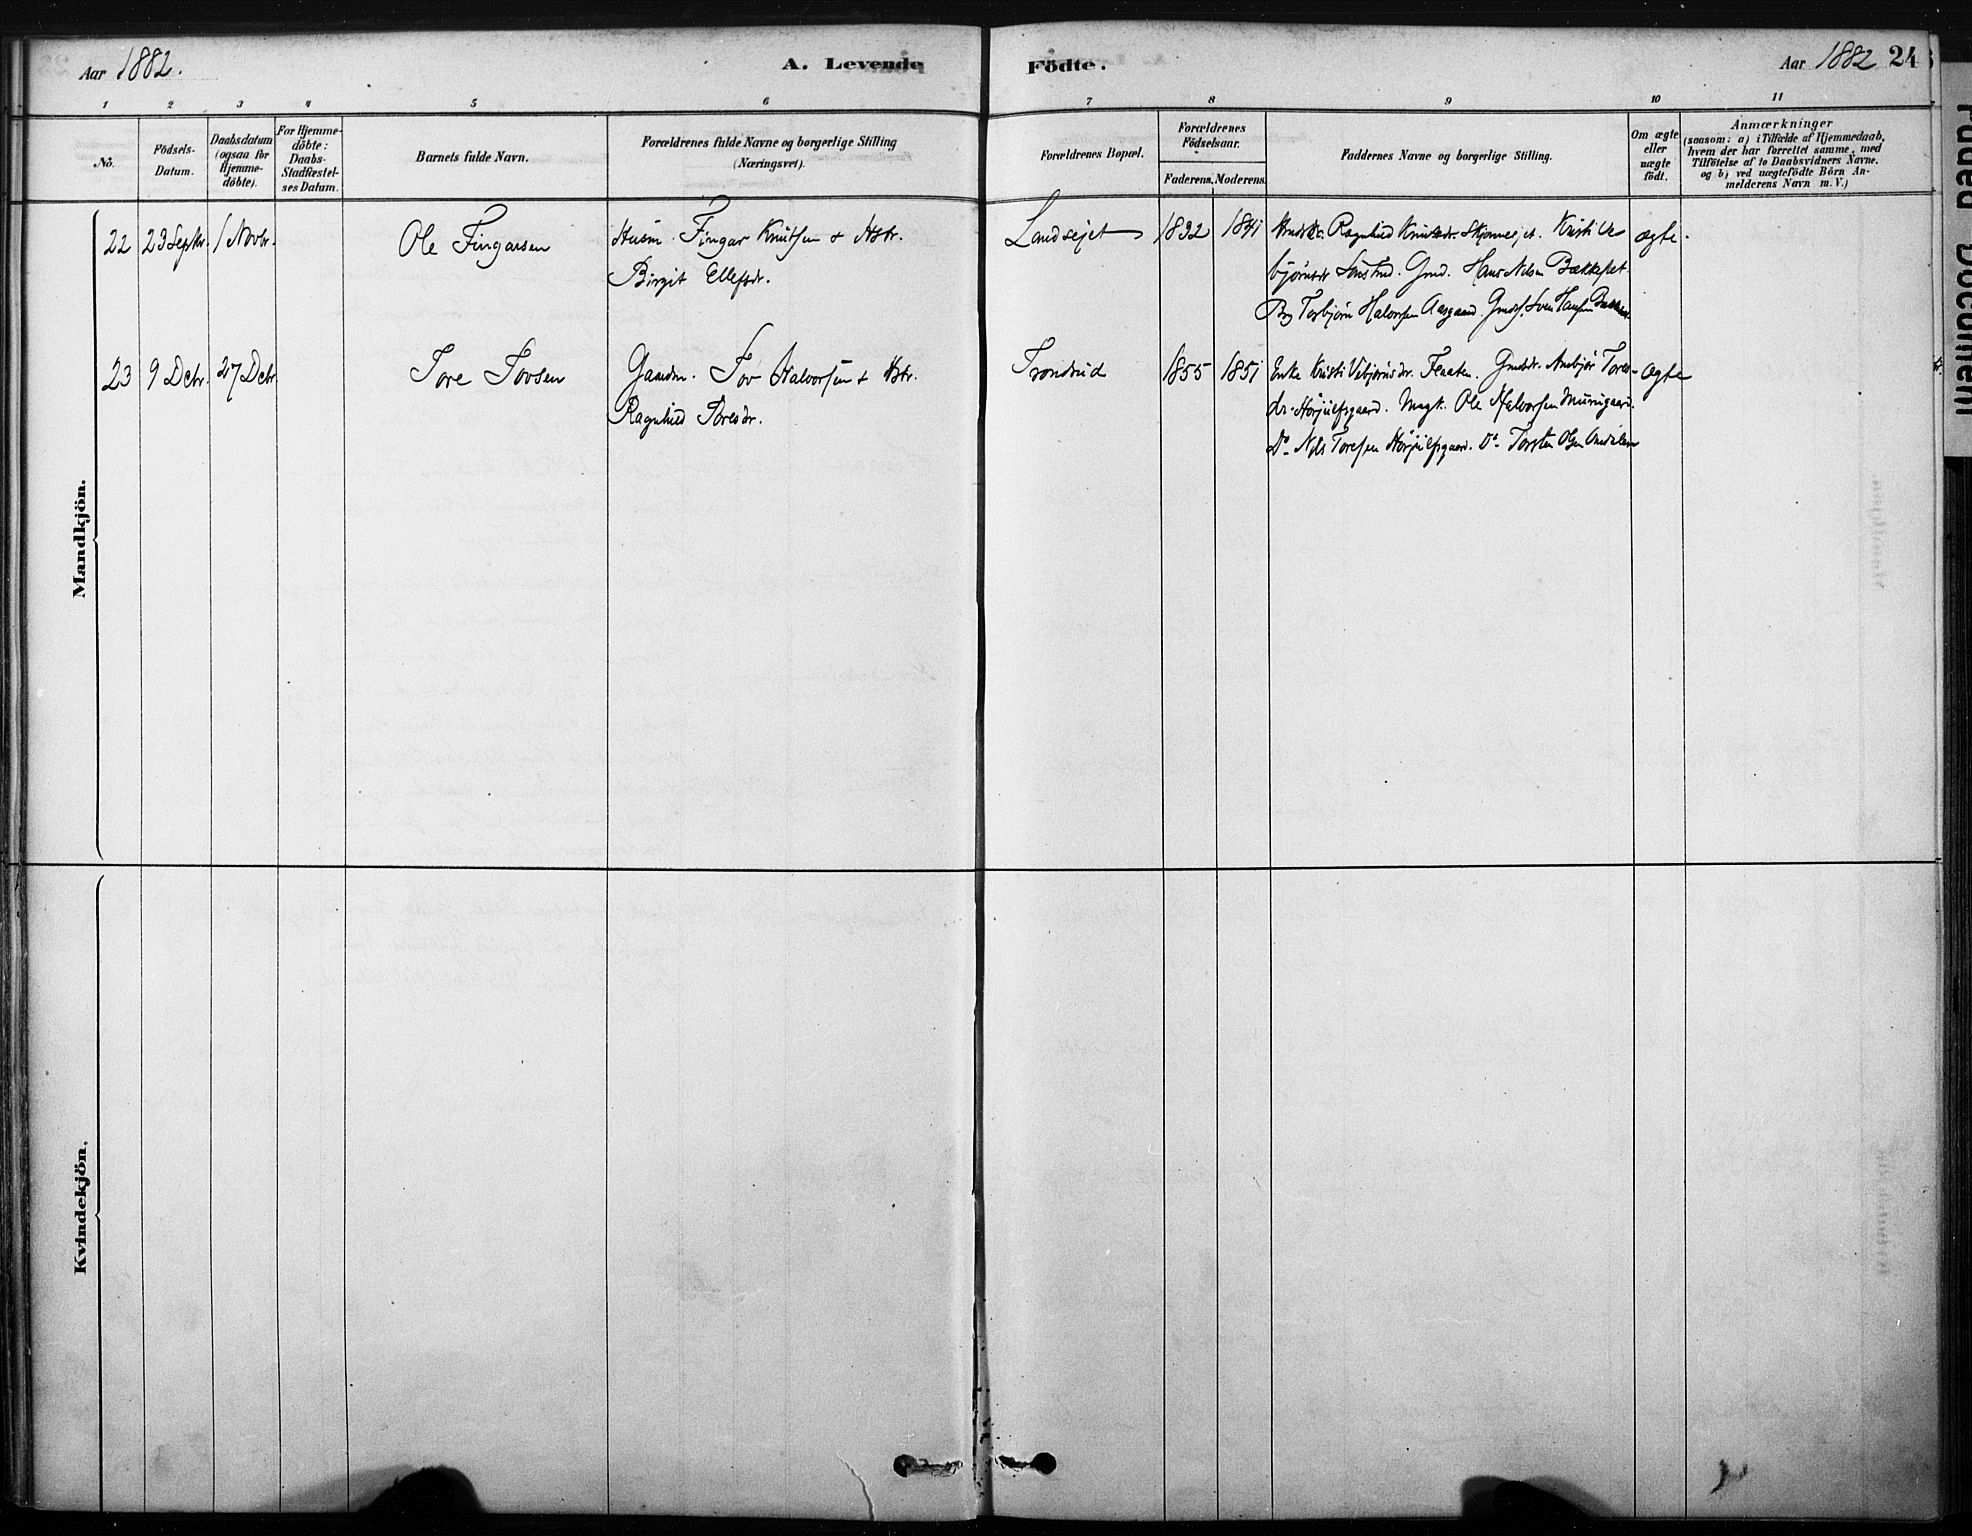 Aar 1882.
A. Levende
Födte.
Aar 1882 24
1 2 3 4 5 6 7 8 9 10 11
No.
Födsels-
Datum.
Daabsdatum
(ogsaa for
Hjemme-
döbte).
For Hjemme-
döbte:
Daabs-
Stadfæstel-
ses Datum.
Barnets fulde Navn.
Forældrenes fulde Navne og borgerlige Stilling
(Næringsvei).
Forældrenes Bopæl.
Forældrenes
Födselsaar.
Faderens. Moderens.
Faddernes Navne og borgerlige Stilling.
Om ægte
eller
uægte
födt.
Anmærkninger
(saasom: a) i Tilfælde af Hjemmedaab,
hvem der har forrettet samme, med
Tilföielse af to Daabsvidners Navne.
og b) ved uægtefödte Börn An-
melderens Navn m. V.)
Mandkjön.
22 23 Septbr. 1 Novbr.
Ole Fingarsen
Husm. Fingar Knutsen & Hstr.
Birgit Ellefsdr.
Landsejet
1832 1841
Ragnhild Knutsdr. Kristi Ve
bjørnsdr Grmd. Hans Nilsen Bækkeset
Torbjørn Halvorsen Aasgaard. Sven Hansen
ægte.
23 9 Dcbr. 27 Dcbr
Tore Tovsen
Gaardm. Tov Halvorsen & Hstr.
Ragnhild Toresdr.
Trondrud
1855 1851
Enke Kristi Vebjørnsdr. Flaaten. Anebjør Tores-
dr. Herjulfsgaard. Ungk. Ole Halvorsen
Do Nils Toresen Herjulfsgaard. Do Torsten Olsen
ægte
Kvindekjön.